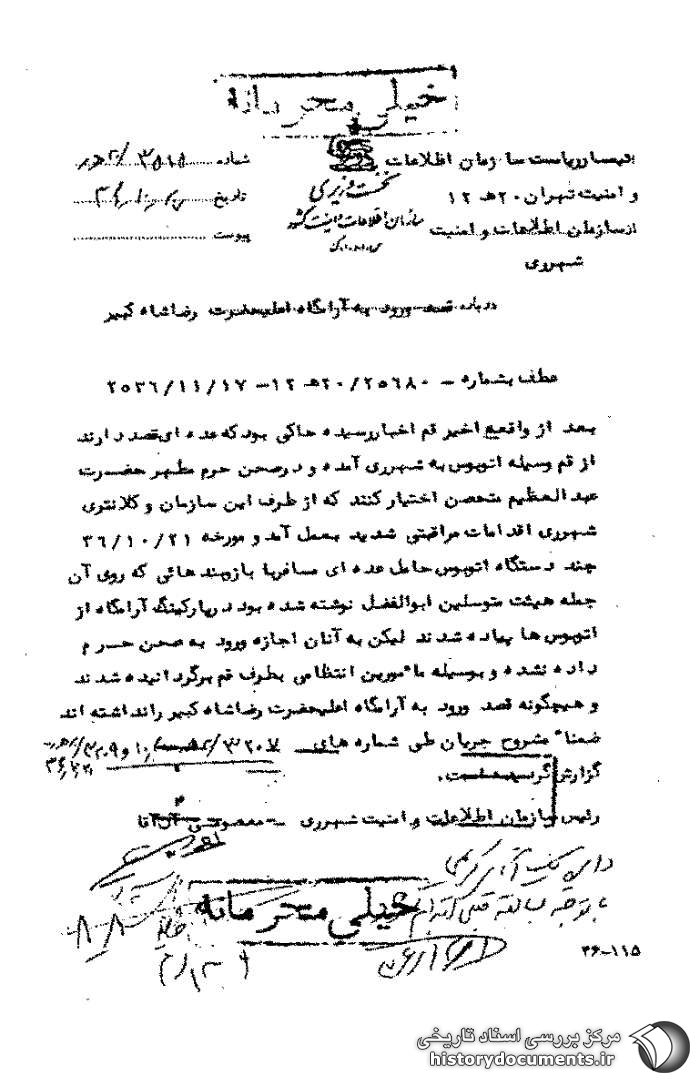 خیلی محرمانه
تیمسار ریاست سازمان اطلاعات
و امنیت تهران ۲۰ هـ ۱۲
از سازمان اطلاعات و امنیت
شهرری
نخست وزیری
سازمان اطلاعات و امنیت کشور
شماره
تاریخ
پیوست
درباره قصد ورود به آرامگاه اعلیحضرت رضاشاه کبیر
عطف بشماره – ۲۰/۲۵٦۸۰ هـ ۱۲ – ۲۵۳٦/۱۱/۱۷
بعد از واقعه اخیر قم اخبار رسیده حاکی بود که عده ای قصد دارند
از قم وسیله اتوبوس به شهرری آمده و در صحن حرم مطهر حضرت
عبدالعظیم متحصن اختیار کنند که از طرف این سازمان و کلانتری
شهرری اقدامات مراقبتی شدید بعمل آمد و مورخه ۳٦/۱۰/۲۱
چند دستگاه اتوبوس حامل عده ای مسافر با بازوبند هائی که روی آن
جمله هیئت متوسلین ابوالفضل نوشته شده بود در پارکینگ آرامگاه از
اتوبوس ها پیاده شدند لیکن به آنان اجازه ورود به صحن حرم
داده نشده و بوسیله مامورین انتظامی بطرف قم برگردانیده شدند
و هیچگونه قصد ورود به آرامگاه اعلیحضرت رضاشاه کبیر را نداشته اند
ضمنا" مشروح جریان طی شماره های
گزارش گردیده است.
رئیس سازمان اطلاعات و امنیت شهرری –
خیلی محرمانه
۳۶-۱۱۵
مرکز بررسی اسناد تاریخی
historydocuments.ir